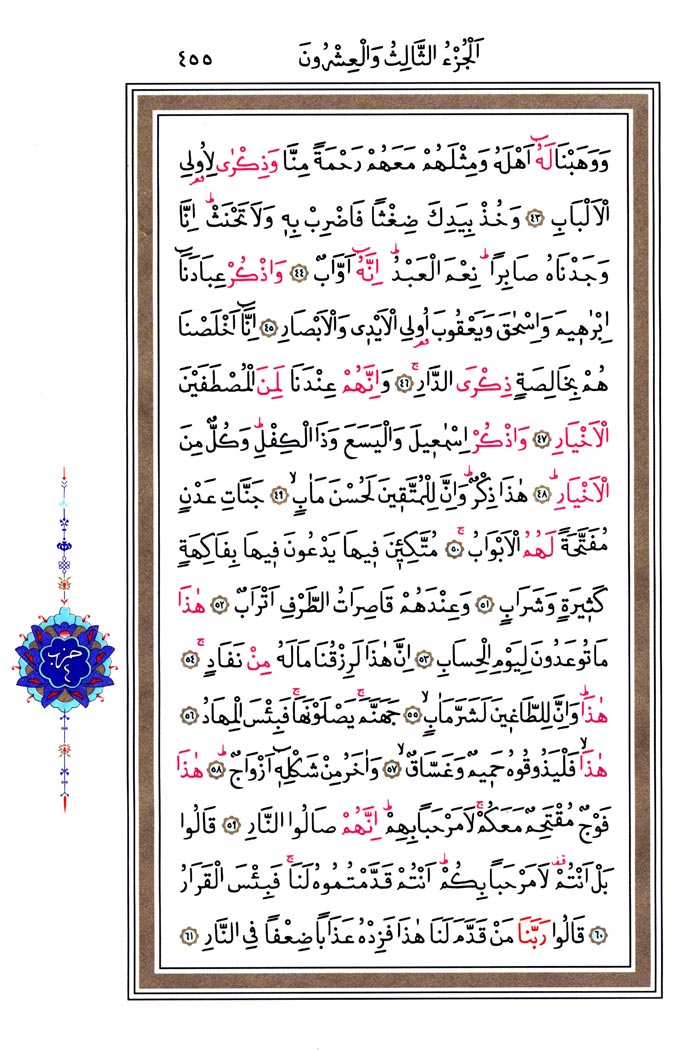 اَلْجُزْءُ الثَّالِثُ وَالْعِشْرُونَ ٤٥٥
وَوَهَبْنَا لَهُٓ اَهْلَهُ وَمِثْلَهُمْ مَعَهُمْ رَحْمَةً مِنَّا وَذِكْرٰى لِاُولِى
الْاَلْبَابِ ﴿٤٣﴾ وَخُذْ بِيَدِكَ ضِغْثًا فَاضْرِبْ بِه۪ وَلَا تَحْنَثْۜ اِنَّا
وَجَدْنَاهُ صَابِرًاۜ نِعْمَ الْعَبْدُۜ اِنَّهُٓ اَوَّابٌ ﴿٤٤﴾ وَاذْكُرْ عِبَادَنَٓا
اِبْرٰه۪يمَ وَاِسْحٰقَ وَيَعْقُوبَ اُولِى الْاَيْد۪ى وَالْاَبْصَارِ ﴿٤٥﴾ اِنَّٓا اَخْلَصْنَا
هُمْ بِخَالِصَةٍ ذِكْرَى الدَّارِۚ ﴿٤٦﴾ وَاِنَّهُمْ عِنْدَنَا لَمِنَ الْمُصْطَفَيْنَ
الْاَخْيَارِۜ ﴿٤٧﴾ وَاذْكُرْ اِسْمٰع۪يلَ وَالْيَسَعَ وَذَا الْكِفْلِۜ وَكُلٌّ مِنَ
الْاَخْيَارِۜ ﴿٤٨﴾ هٰذَا ذِكْرٌۜ وَاِنَّ لِلْمُتَّق۪ينَ لَحُسْنَ مَاٰبٍۙ ﴿٤٩﴾ جَنَّاتِ عَدْنٍ
مُفَتَّحَةً لَهُمُ الْاَبْوَابُۚ ﴿٥٠﴾ مُتَّكِـ۪ٔينَ ف۪يهَا يَدْعُونَ ف۪يهَا بِفَاكِهَةٍ
كَث۪يرَةٍ وَشَرَابٍ ﴿٥١﴾ وَعِنْدَهُمْ قَاصِرَاتُ الطَّرْفِ اَتْرَابٌ ﴿٥٢﴾ هٰذَا
مَا تُوعَدُونَ لِيَوْمِ الْحِسَابِ ﴿٥٣﴾ اِنَّ هٰذَا لَرِزْقُنَا مَا لَهُ مِنْ نَفَادٍۚ ﴿٥٤﴾
هٰذَاۜ وَاِنَّ لِلطَّاغ۪ينَ لَشَرَّ مَاٰبٍۙ ﴿٥٥﴾ جَهَنَّمَۚ يَصْلَوْنَهَاۚ فَبِئْسَ الْمِهَادُ ﴿٥٦﴾
هٰذَاۙ فَلْيَذُوقُوهُ حَم۪يمٌ وَغَسَّاقٌۙ ﴿٥٧﴾ وَاٰخَرُ مِنْ شَكْلِه۪ٓ اَزْوَاجٌۜ ﴿٥٨﴾ هٰذَا
فَوْجٌ مُقْتَحِمٌ مَعَكُمْۚ لَا مَرْحَبًا بِهِمْۜ اِنَّهُمْ صَالُوا النَّارِ ﴿٥٩﴾ قَالُوا
بَلْ اَنْتُمْ۠ لَا مَرْحَبًا بِكُمْۜ اَنْتُمْ قَدَّمْتُمُوهُ لَنَاۚ فَبِئْسَ الْقَرَارُ
﴿٦٠﴾ قَالُوا رَبَّنَا مَنْ قَدَّمَ لَنَا هٰذَا فَزِدْهُ عَذَابًا ضِعْفًا فِى النَّارِ ﴿٦١﴾
حزب ٤